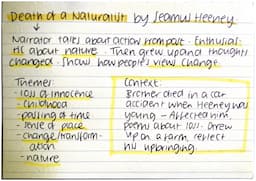 Death of a Naturalist by Seamus Heeney
Narrator talks about action from past. Enthusias-
tic about nature. Then grew up and thoughts
changed. Shows how people's view change.
Themes:
- loss of innocence
- childhood
- passing of time
- sense of place
- change/transform-
ation
- nature
Context:
Brother died in a car
accident when Heeney was
young - Affected him,
poems about loss. Grew
up on a farm, reflect
his upbringing.